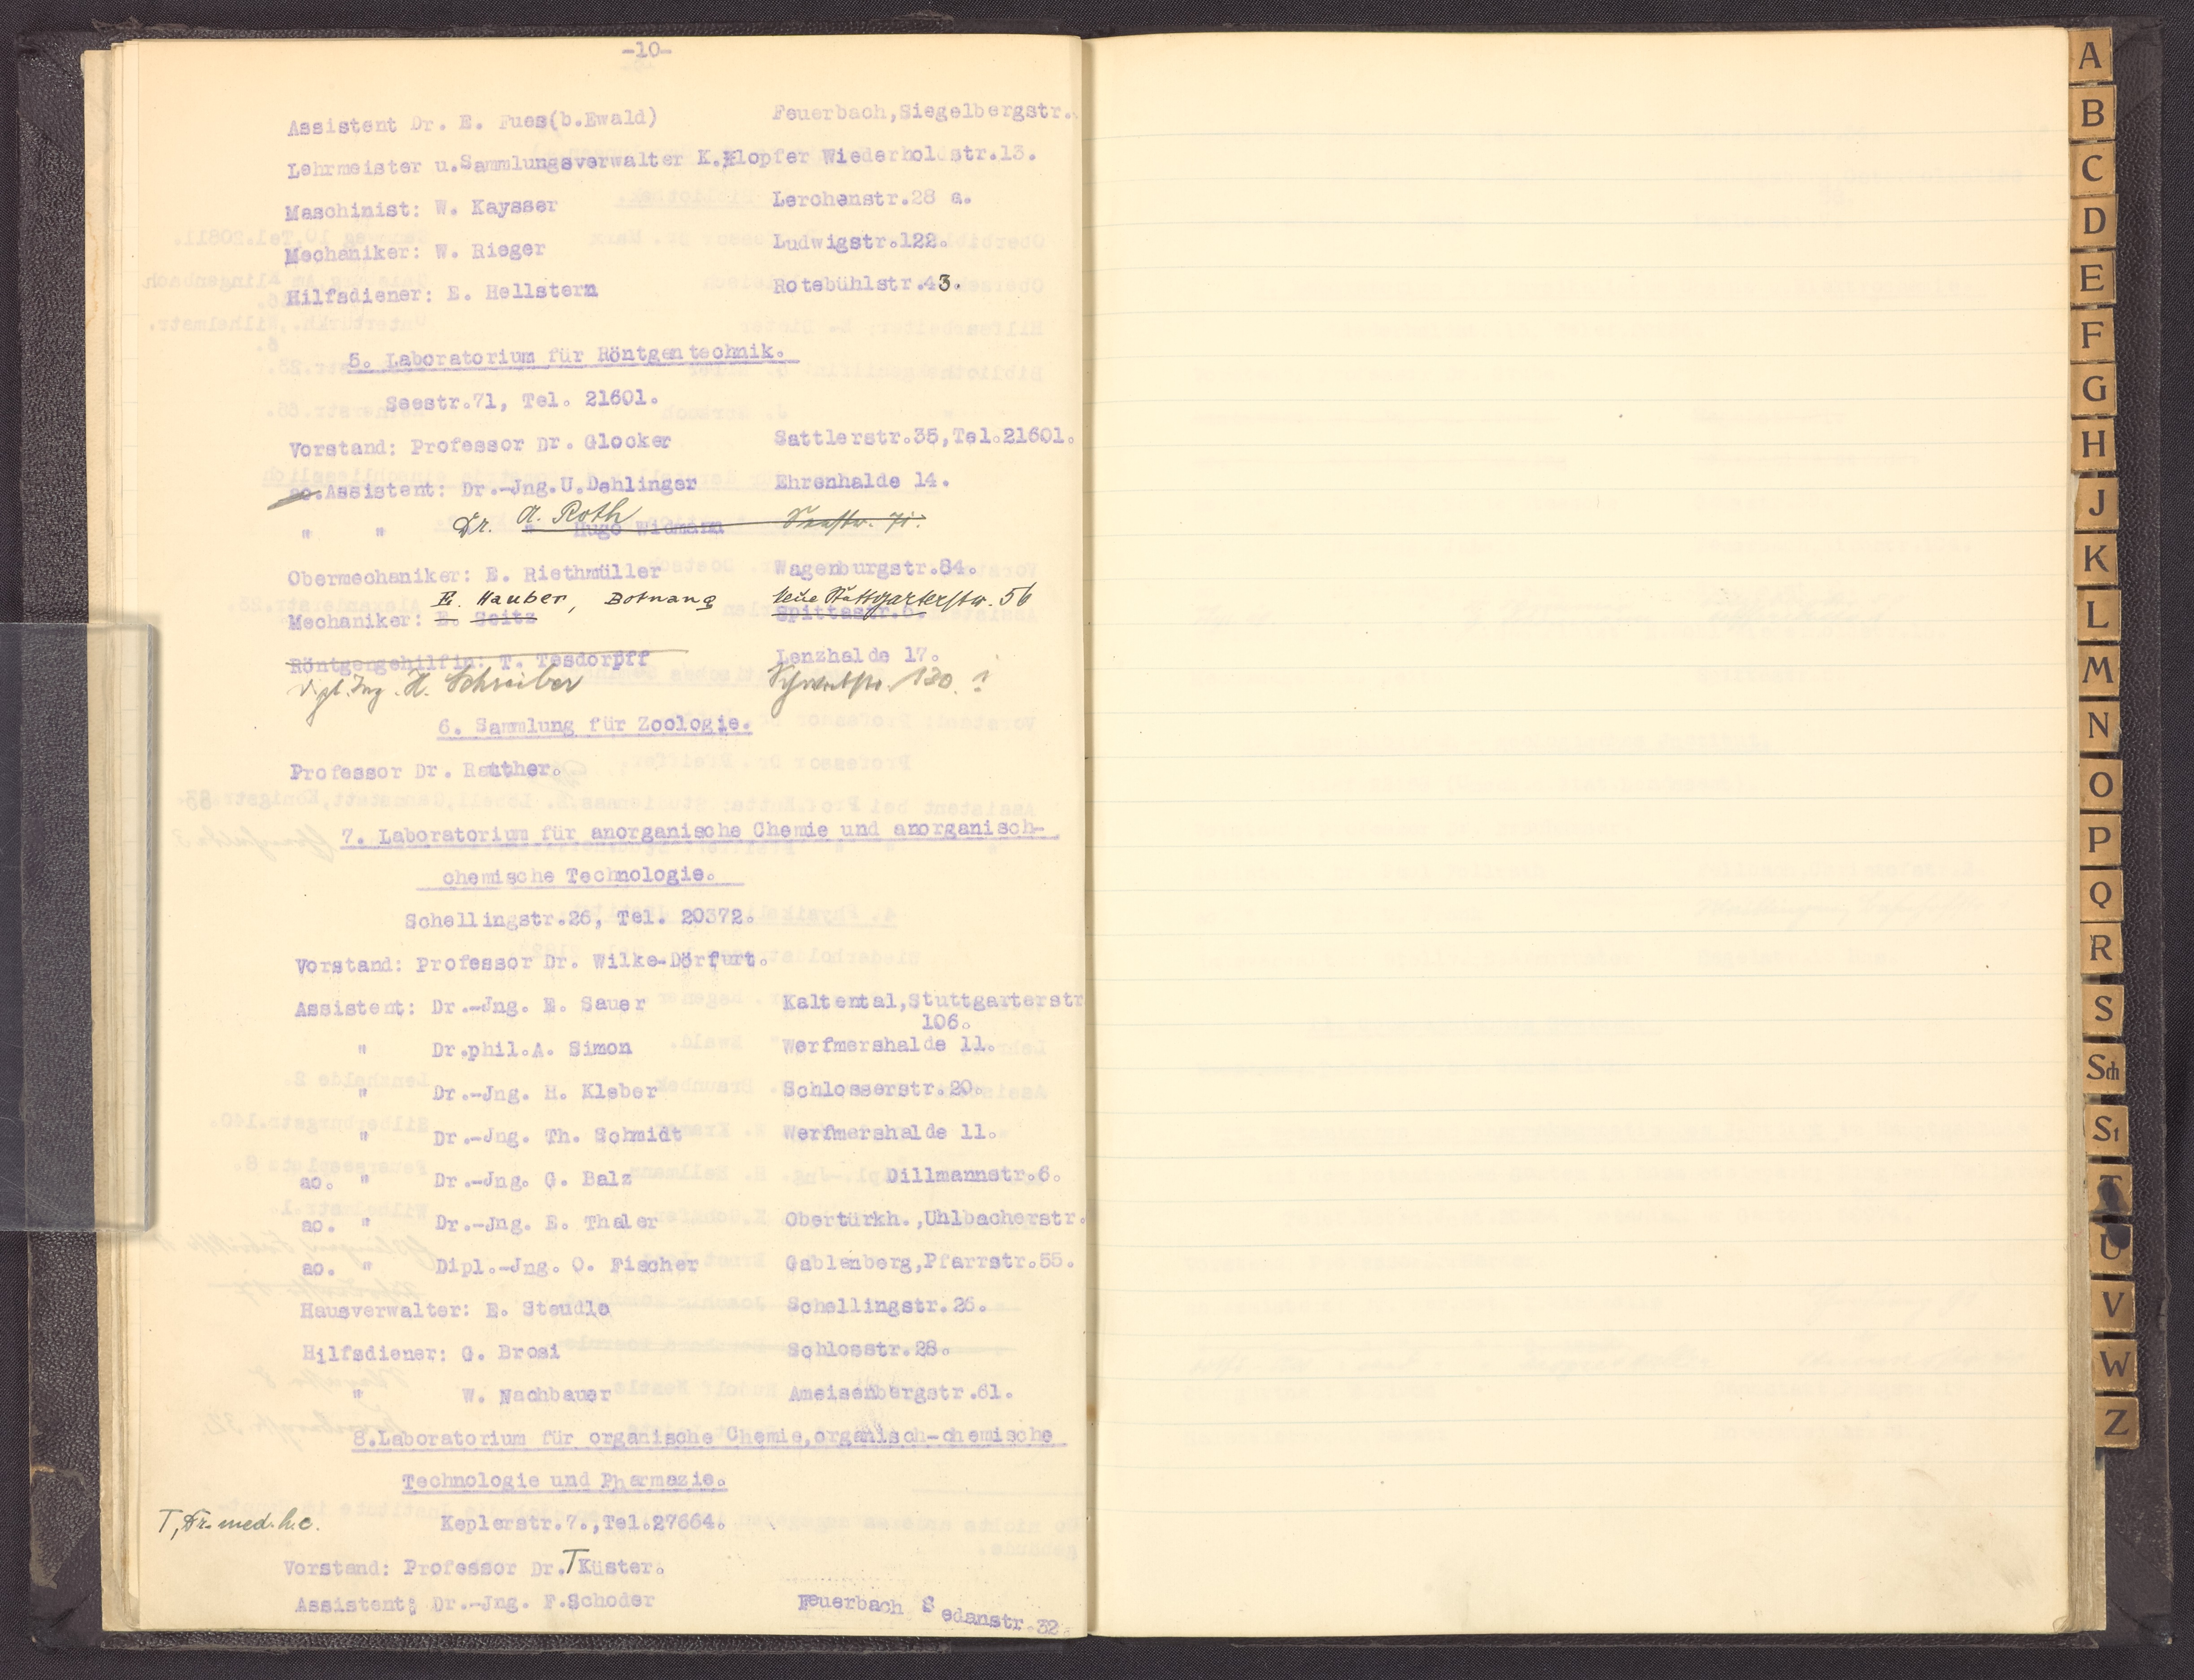 -10-
Assistent Dr. E. Fues(b.Ewald) Feuerbach,Siegelbergstr.
Lehrmeister u.Sammlungsverwalter K.Klopfer Wiederholdstr.13.
Maschinist: W. Kaysser Lerchenstr.28 a.
Mechaniker: W. Rieger Ludwigstr.122.
Hilfsdiener: E. Hellstern Rotebühlstr.43.
5. Laboratorium für Röntgentechnik.
Seestr.71, Tel. 21601.
Vorstand: Professor Dr. Glocker Sattlerstr.35,Tel.21601.
ao.Assistent: Dr.-Jng.U.Dehlinger Ehrenhalde 14.
A. Roth
" " Dr. " Hugo Widmann Seestr. 71.
Obermechaniker: E. Riethmüller Wagenburgstr.84.
E. Hauber, Botnang Neue Stuttgarterstr. 56
Mechaniker: E. Seitz Spittastr.5.
Röntgengehilfin: T. Tesdorpff Lenzhalde 17.
Dipl. Ing. H. Schreiber 130.
6. Sammlung für Zoologie.
Professor Dr. Rauther.
7. Laboratorium für anorganische Chemie und anorganisch-
chemische Technologie.
Schellingstr.26, Tel. 20372.
Vorstand: Professor Dr. Wilke-Dörfurt.
Assistent: Dr.-Jng. E. Sauer Kaltental,Stuttgarterstr
106.
" Dr.phil.A. Simon Werfmershalde 11.
" Dr.-Jng. H. Kleber Schlosserstr.20.
" Dr.-Jng. Th. Schmidt Werfmershalde 11.
ao. " Dr.-Jng. G. Balz Dillmannstr.6.
ao. " Dr.-Jng. E. Thaler Obertürkh.,Uhlbacherstr.
ao. " Dipl.-Jng. O. Fischer Gablenberg,Pfarrstr.55.
Hausverwalter: E. Steudle Schellingstr.26.
Hilfsdiener: G. Brosi Schlosstr.28.
" W. Nachbauer Ameisenbergstr.61.
8.Laboratorium für organische Chemie,organisch-chemische
Technologie und Pharmazie.
T, Dr. med. h.c. Keplerstr.7.,Tel.27664.
Vorstand: Professor Dr.TKüster.
Assistent: Dr.-Jng. F.Schoder Feuerbach Sedanstr.32.
A
B
C
D
E
F
G
H
J
K
L
M
N
O
P
Q
R
S
Sch
St
T
U
V
W
Z